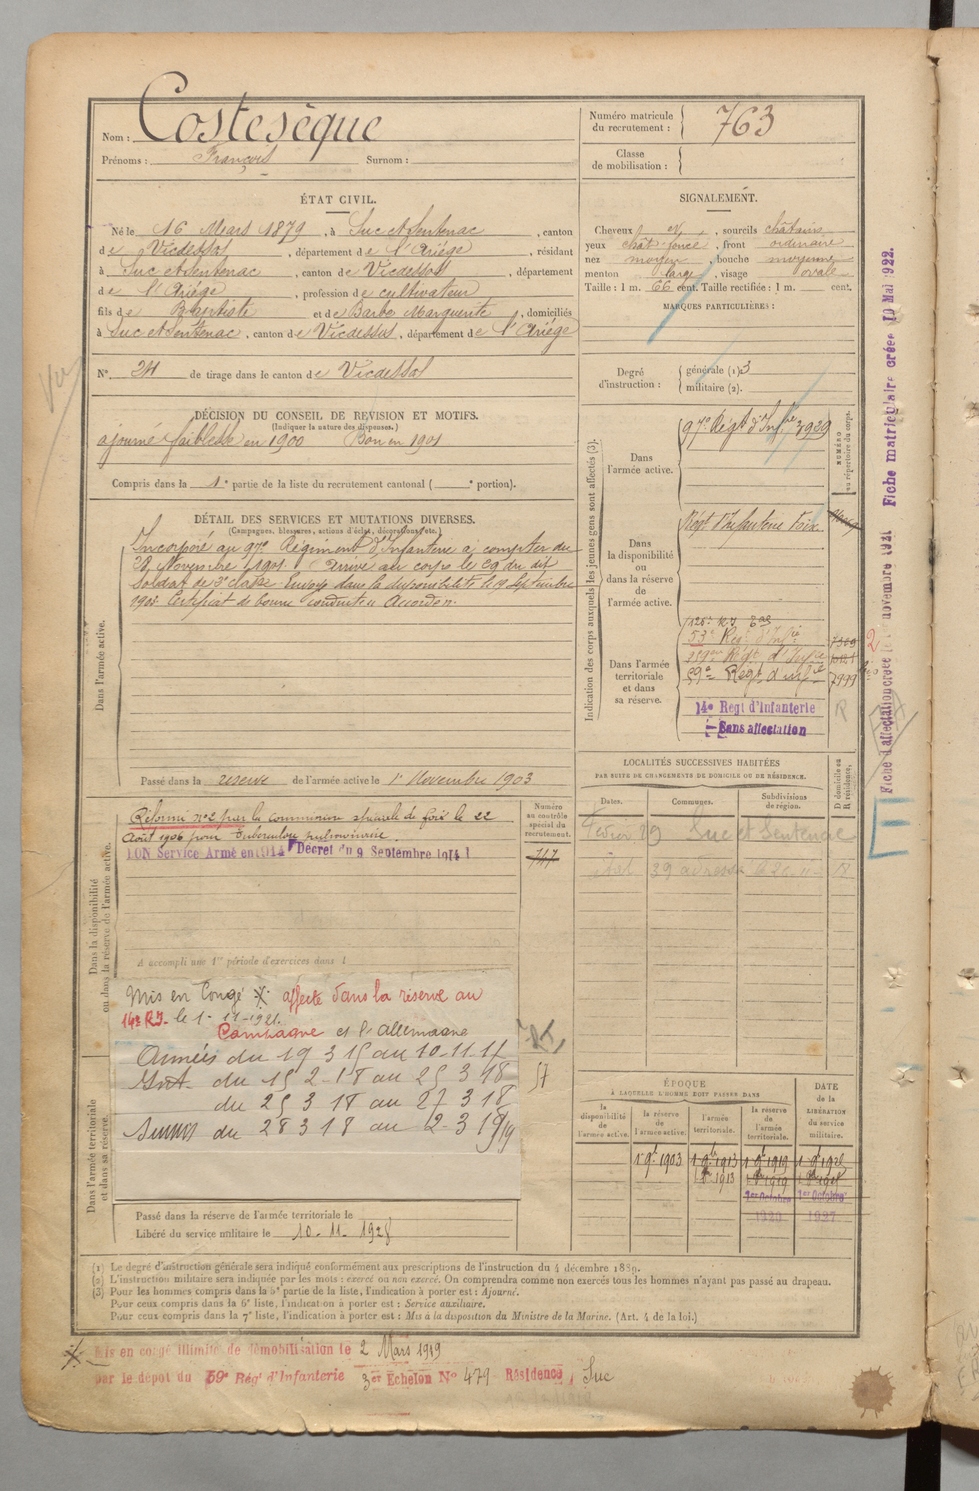 Nom : Costesèque
Prénoms : François Surnom :
Numéro matricule du recrutement : 763
Classe de mobilisation :
ÉTAT CIVIL.
Né le 16 Mars 1879, à Suc et Sentenac, canton
de Vicdessos, département de l'Ariége, résidant
à Suc et Sentenac, canton de Vicdessos, département
de l'Ariége, profession de cultivateur
fils de Baptiste et de Barbe Marguerite, domiciliés
à Suc et Sentenac, canton de Vicdessos, département de l'Ariége
N° 24 de tirage dans le canton de Vicdessos
SIGNALEMENT.
Cheveux id, sourcils châtains
yeux chât. foncé, front ordinaire
nez moyen, bouche moyenne
menton large, visage ovale
Taille : 1 m. 66 cent. Taille rectifiée : 1 m. cent.
MARQUES PARTICULIÈRES :
Degré d'instruction : générale (1) 3
militaire (2).
DÉCISION DU CONSEIL DE REVISION ET MOTIFS.
(Indiquer la nature des dispenses.)
ajourné faiblesse en 1900 Bon en 1901
Compris dans la 1e partie de la liste du recrutement cantonal ( e portion).
DÉTAIL DES SERVICES ET MUTATIONS DIVERSES.
(Campagnes, blessures, actions d'éclat, décorations, etc.)
Dans l'armée active.
Incorporé au 97e Régiment d'Infanterie à compter du
Novembre 1901. Arrivé au corps le 29 du dit
Soldat de 2e classe. Envoyé dans la disponibilité le 19 Septembre
1903. Certificat de bonne conduite Accordé.
Passé dans la réserve de l'armée active le 1er Novembre 1903
Indication des corps auxquels les jeunes gens sont affectés (3).
NUMÉRO au répertoire du corps.
Dans l'armée active.
97e Régt d'Infrie 3939
Dans la disponibilité ou dans la réserve de l'armée active.
Régt d'Infanterie Foix
Dans l'armée territoriale et dans sa réserve.
53e Régt d'Infie
119e Régt d'Infie
59e Régt d'infie 7999
14e Regt d'Infanterie R
Sans affectation
Fiche d'affectation créée le novembre 1921 Fiche matriculaire créée 10 Mai 1922.
LOCALITÉS SUCCESSIVES HABITÉES
PAR SUITE DE CHANGEMENTS DE DOMICILE OU DE RÉSIDENCE.
Dates. Communes. Subdivisions de région. D domicile ou R résidence.
19 Suc et Sentenac
39 adresse
Dans la disponibilité ou dans la réserve de l'armée active.
Numéro au contrôle spécial du recrutement.
Réforme N°2 par la commission spéciale de foix le 22
Août 1906 pour Tuberculose pulmonaire.
BON Service Armé en 1914 Décret du 9 Septembre 1914
747
A accompli une 1re période d'exercices dans l
Mis en Congé affecté dans la réserve au
14e R.I. le 1-11-1921.
Campagne c/ l'allemagne
Armées du 19 3 15 au 10-11-17
Int du 15 2-18 au 25 3 18
du 25 3 18 au 27 3 18
Armées du 28 3 18 au 2-3 1919
57
Dans l'armée territoriale et dans sa réserve.
Passé dans la réserve de l'armée territoriale le
Libéré du service militaire le 10-11-1928
ÉPOQUE
À LAQUELLE L'HOMME DOIT PASSER DANS
la disponibilité de l'armée active. la réserve de l'armée active. l'armée territoriale. la réserve de l'armée territoriale.
DATE de la LIBÉRATION du service militaire.
1er 9bre 1903 1er 9bre 1913 1er 9bre 1919
1er Octobre 1920 1er Octobre 1927
(1) Le degré d'instruction générale sera indiqué conformément aux prescriptions de l'instruction du 4 décembre 1889.
(2) L'instruction militaire sera indiquée par les mots : exercé ou non exercé. On comprendra comme non exercés tous les hommes n'ayant pas passé au drapeau.
(3) Pour les hommes compris dans la 5e partie de la liste, l'indication à porter est : Ajourné.
Pour ceux compris dans la 6e liste, l'indication à porter est : Service auxiliaire.
Pour ceux compris dans la 7e liste, l'indication à porter est : Mis à la disposition du Ministre de la Marine. (Art. 4 de la loi.)
Mis en congé illimité de démobilisation le 2 Mars 1919
par le dépôt du 59e Régt d'Infanterie 3er Echelon N° 479 Résidence, Suc